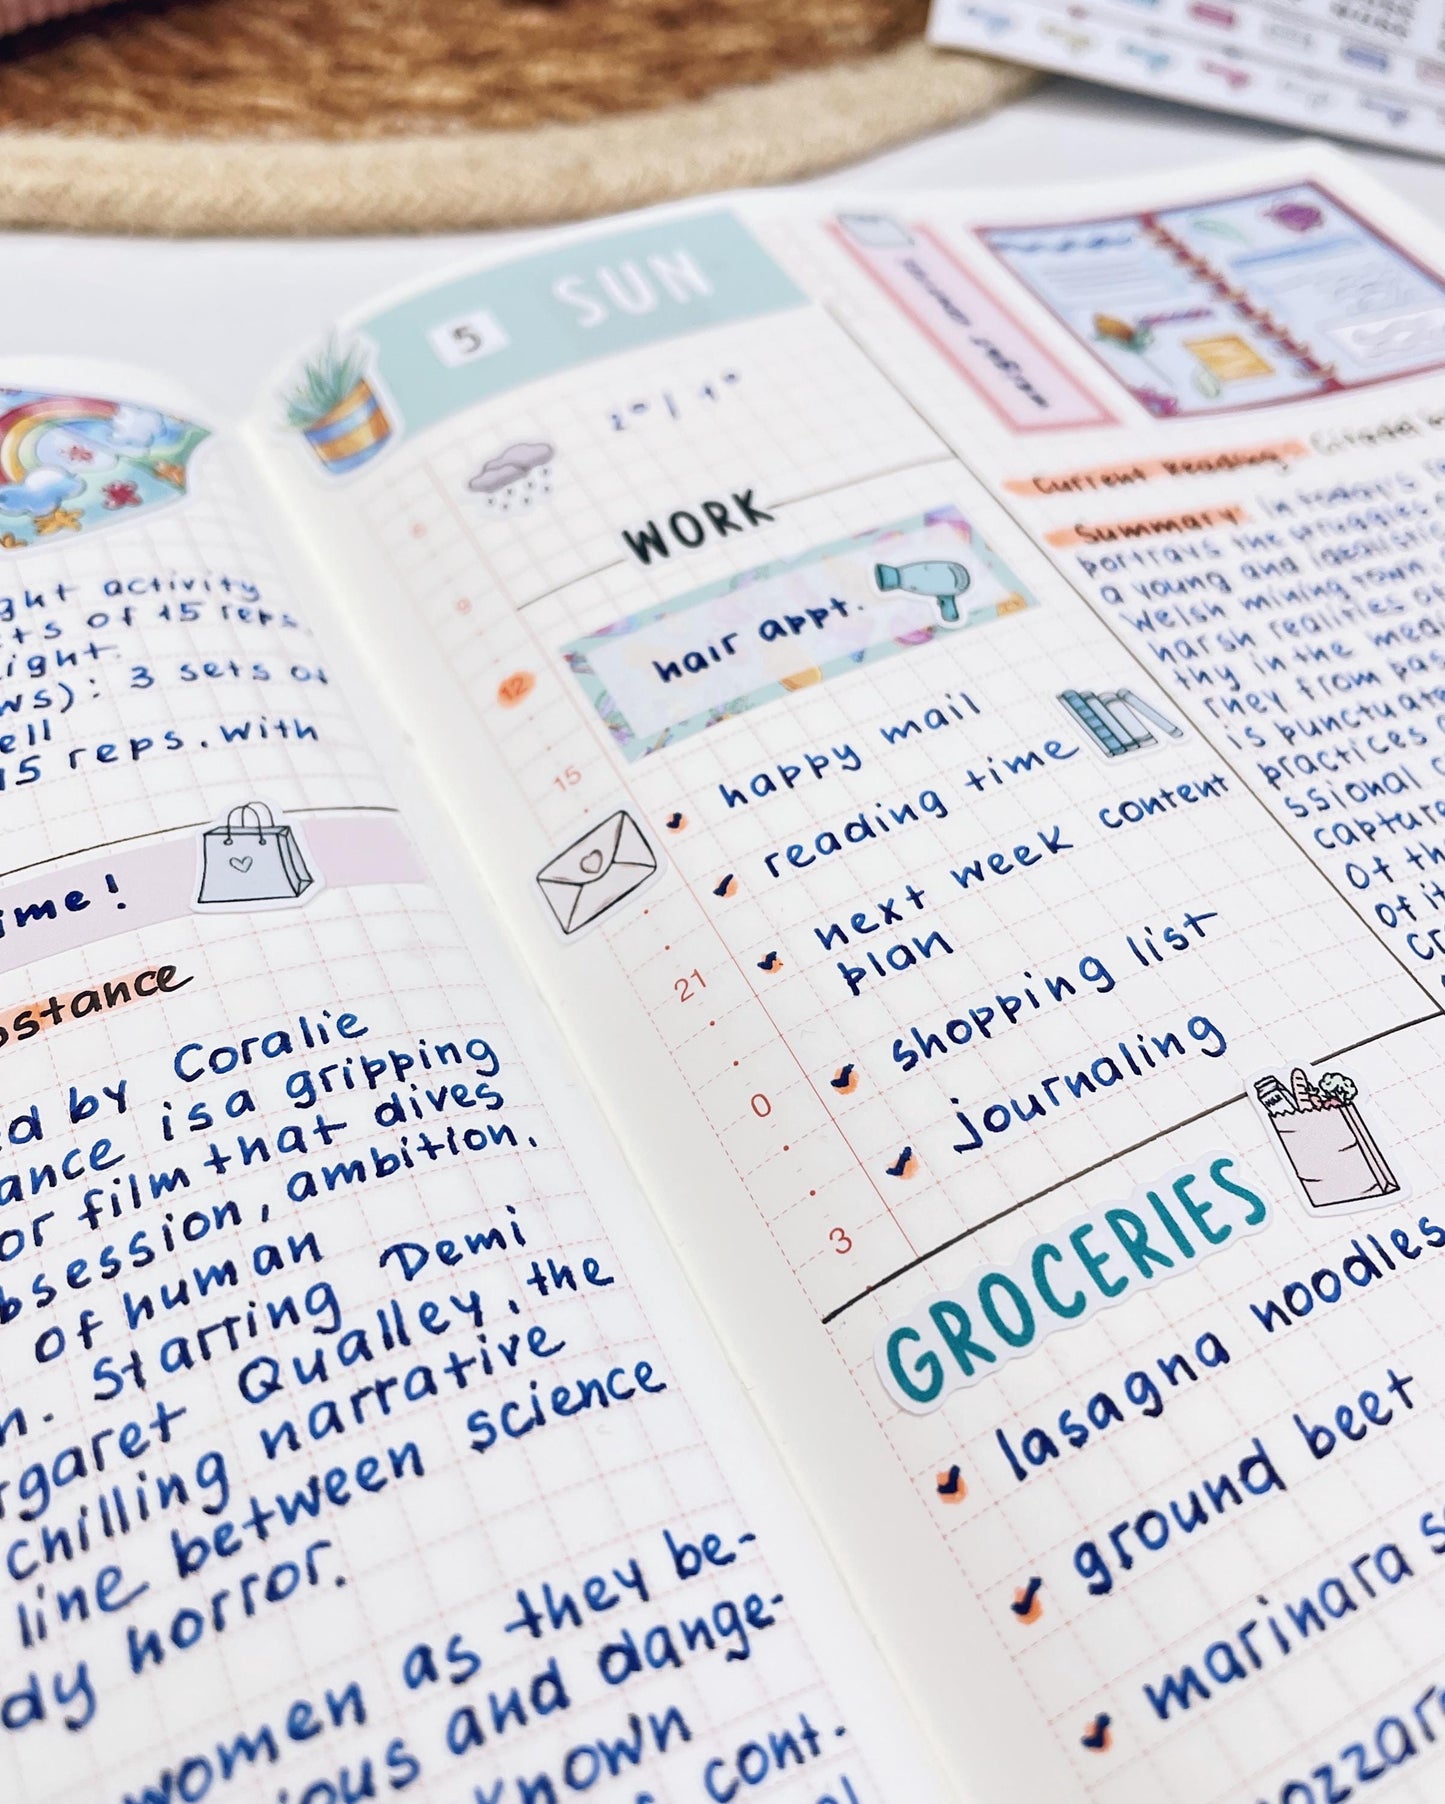 ght activity
ts of 15 reps.
ight.
ws): 3 sets of
ell
15 reps. with
ime!
bstance
ed by Coralie
ance is a gripping
or film that dives
bsession, ambition,
of human
n. Starring Demi
rgaret Qualley, the
chilling narrative
line between science
dy horror.
women as they be-
ious and dange-
known
cont.
5 SUN
WORK
hair appt.
9
12
15
21
0
3
happy mail
reading time
next week content
plan
shopping list
journaling
GROCERIES
lasagna noodles
ground beet
marinara s
ozzar
Current Reading: Citadel
Summary: In today's
portrays the struggles
a young and idealistic
Welsh mining town.
harsh realities
thy in the med
rney from pas
is punctuate
practices
ssional
capture
of th
of it